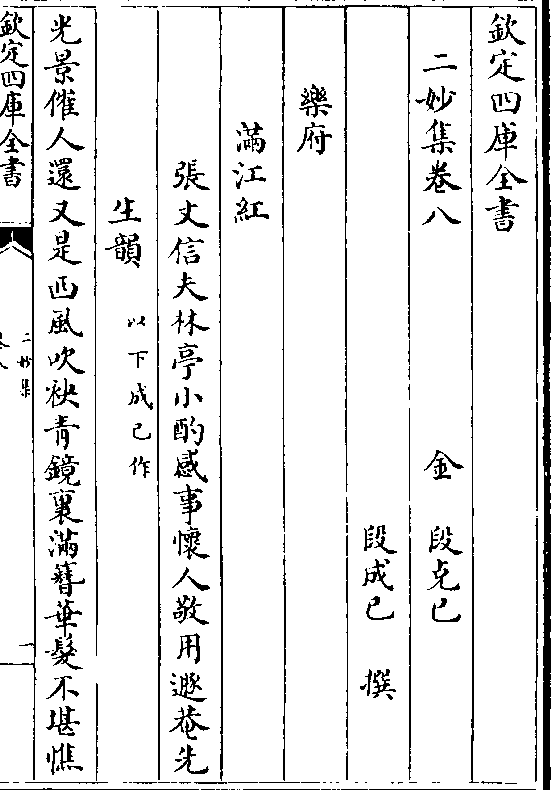 欽定四庫全書
二妙集卷八
金　段克己
段成己　撰
樂府
滿江紅
張丈信夫林亭小酌感事懷人敬用遯菴先
生韻
以下成己作
光景催人還又是西風吹袂青鏡裏滿簪華髮不堪憔
欽定四庫全書
二妙集
卷八
一